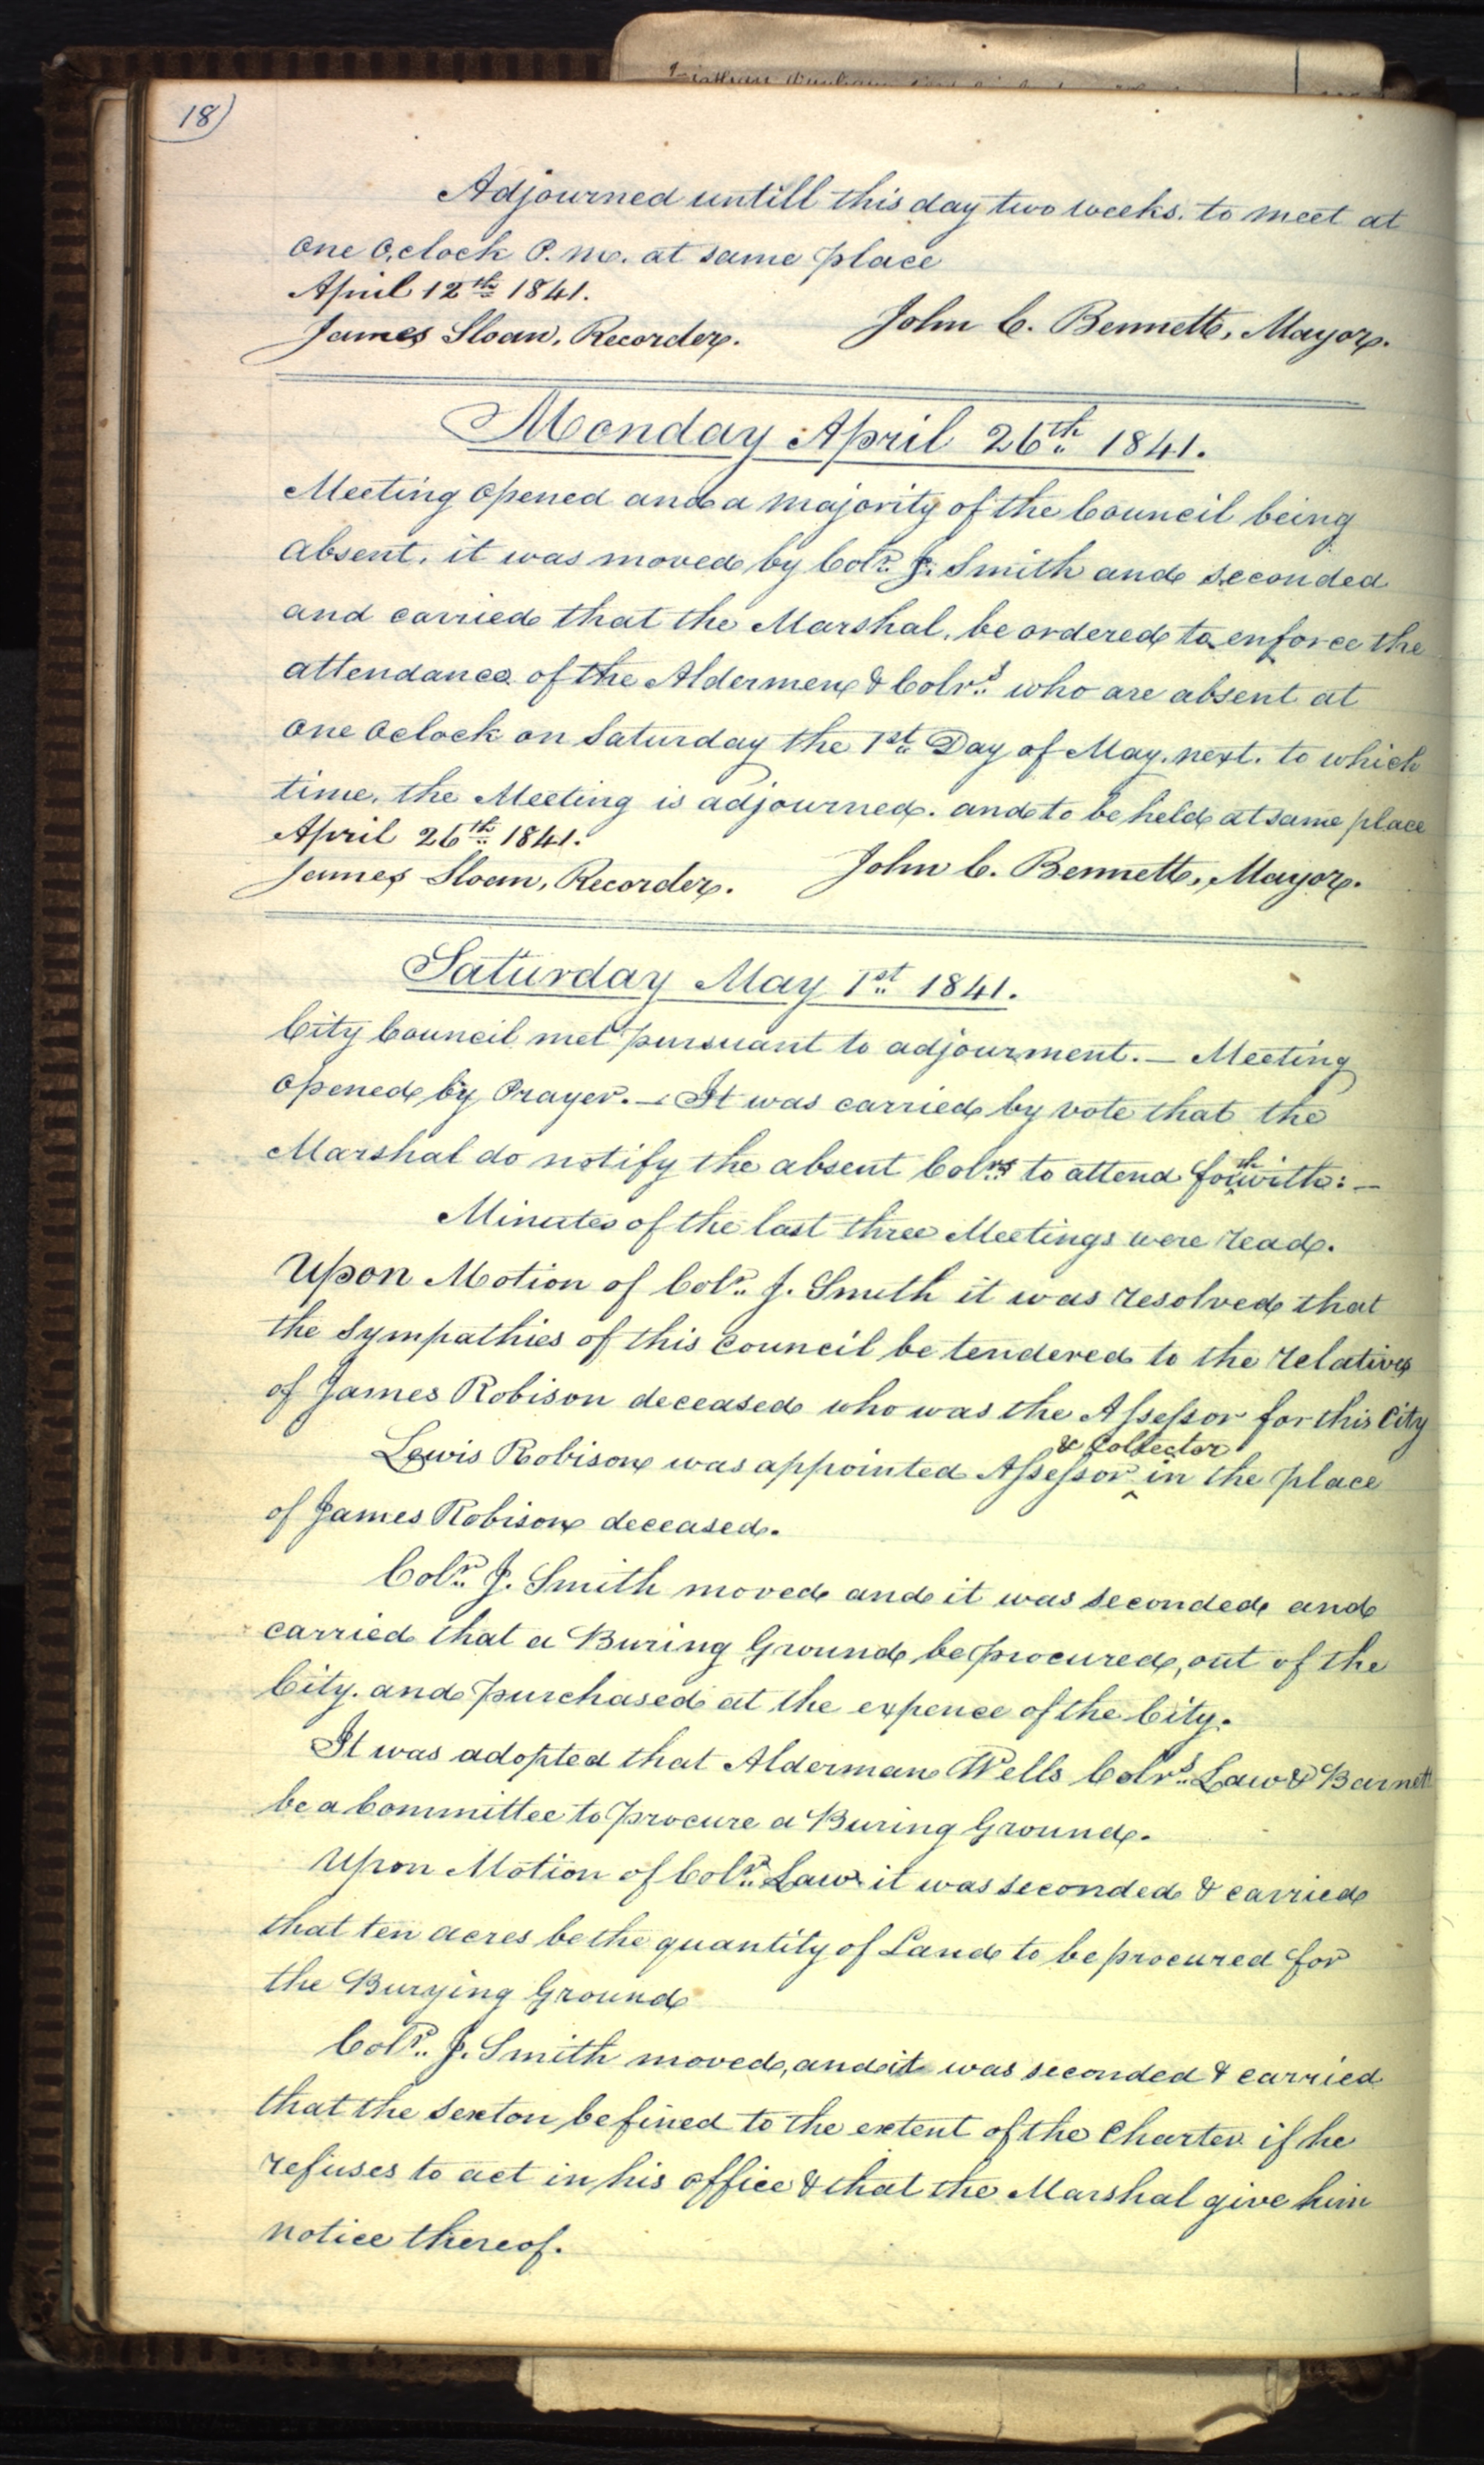 18)
Adjourned untill this day two weeks. to meet at
One O,clock P. M. at same place
April 12th 1841.
James Sloan, Recorder. John C. Bennett, Mayor.
Monday April 26th 1841.
Meeting Opened and a Majority of the Council being
absent. it was moved by Colr. J. Smith and seconded
and carried that the Marshal, be ordered to enforce the
attendance of the Aldermen & Colrs. who are absent at
One Oclock on Saturday the 1st Day of May. next. to which
time. the Meeting is adjourned. and to be held at same place
April 26th 1841.
James Sloan, Recorder. John C. Bennett, Mayor.
Saturday May 1st 1841.
City Council met pursuant to adjourment.— Meeting
Opened by Prayer.— It was carried by vote that the
Marshal do notify the absent Colrs. to attend forthwith:—
Minutes of the last three Meetings were read.
Upon Motion of Colr. J. Smith it was resolved that
the Sympathies of this Council be tendered to the relatives
of James Robison deceased who was the Assessor for this City
Lewis Robison was appointed Assessor & Collector in the place
of James Robison deceased.
Colr. J. Smith moved and it was seconded and
carried that a Buring Ground be procured, out of the
City. and purchased at the expence of the City.
It was adopted that Alderman Wells Colrs. Law & Barnett
be a Committee to procure a Buring Ground.
Upon Motion of Colr. Law it was seconded & carried
that ten acres be the quantity of Land to be procured for
the Burying Ground
Colr. J. Smith moved, and it was seconded & carried
that the Sexton be fined to the extent of the Charter if he
refuses to act in his office & that the Marshal give him
notice thereof.